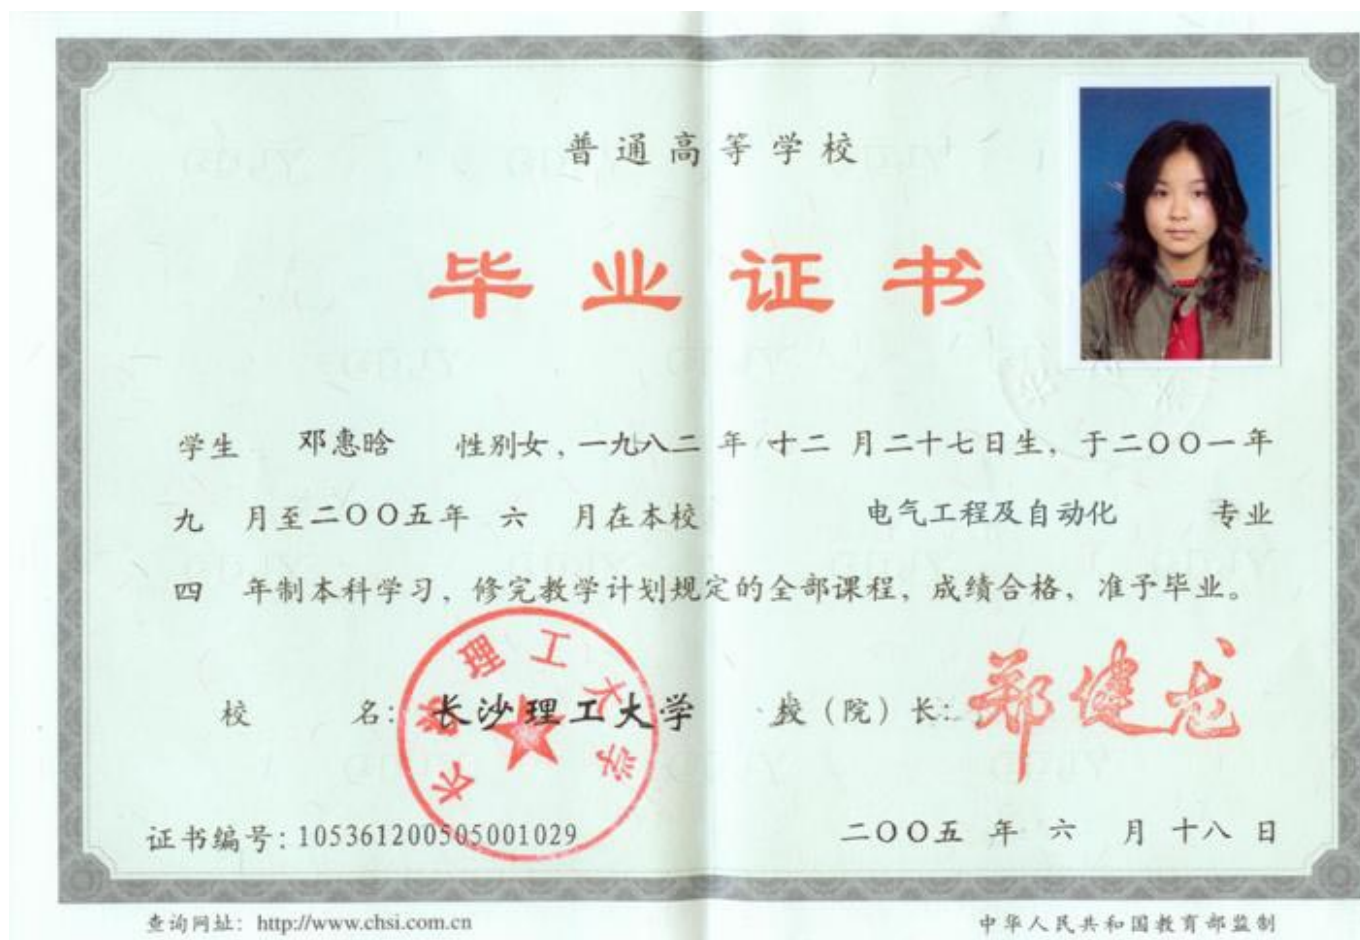 普通高等学校
毕业证书
学生 邓惠晗 性别女，一九八二 年 十二 月二十七日生，于二〇〇一年
九 月至二〇〇五年 六 月在本校 电气工程及自动化 专业
四 年制本科学习，修完教学计划规定的全部课程，成绩合格，准予毕业。
校 名：长沙理工大学 校（院）长：郑健龙
长沙理工大学
证书编号：105361200505001029 二〇〇五 年 六 月 十八 日
查询网址：http://www.chsi.com.cn 中华人民共和国教育部监制